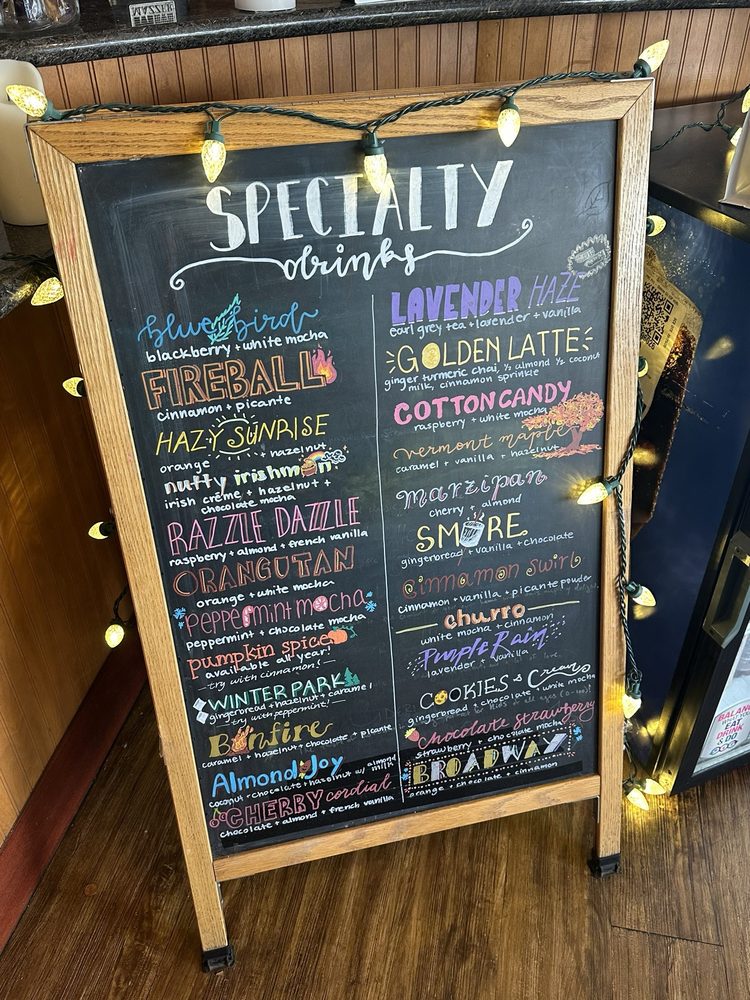 MAZZER
SPECIALTY
drinks
blue bird
blackberry + white mocha
FIREBALL
cinnamon + picante
HAZY SUNRISE
orange + hazelnut
nutty irishman
irish crème + hazelnut +
chocolate mocha
RAZZLE DAZZLE
raspberry + almond + french vanilla
ORANGUTAN
orange + white mocha
peppermint mocha
peppermint + chocolate mocha
pumpkin spice
available all year!
- try with cinnamon! -
WINTER PARK
gingerbread + hazelnut + caramel
- try with peppermint! -
Bonfire
caramel + hazelnut + chocolate + picante
Almond Joy
coconut + chocolate + hazelnut w/ almond
milk
CHERRY cordial
chocolate + almond + french vanilla
LAVENDER HAZE
earl grey tea + lavender + vanilla
GOLDEN LATTE
ginger turmeric chai, ½ almond ½ coconut
milk, cinnamon sprinkle
COTTON CANDY
raspberry + white mocha
vermont maple
caramel + vanilla + hazelnut
marzipan
cherry + almond
SMORE
gingerbread + vanilla + chocolate
cinnamon swirl
cinnamon + vanilla + picante powder
churro
white mocha + cinnamon
Purple Rain
lavender + vanilla
COOKIES & Cream
gingerbread + chocolate + white mocha
chocolate strawberry
strawberry + chocolate mocha
BROADWAY
orange + chocolate + cinnamon
EAT
DRINK
& DO